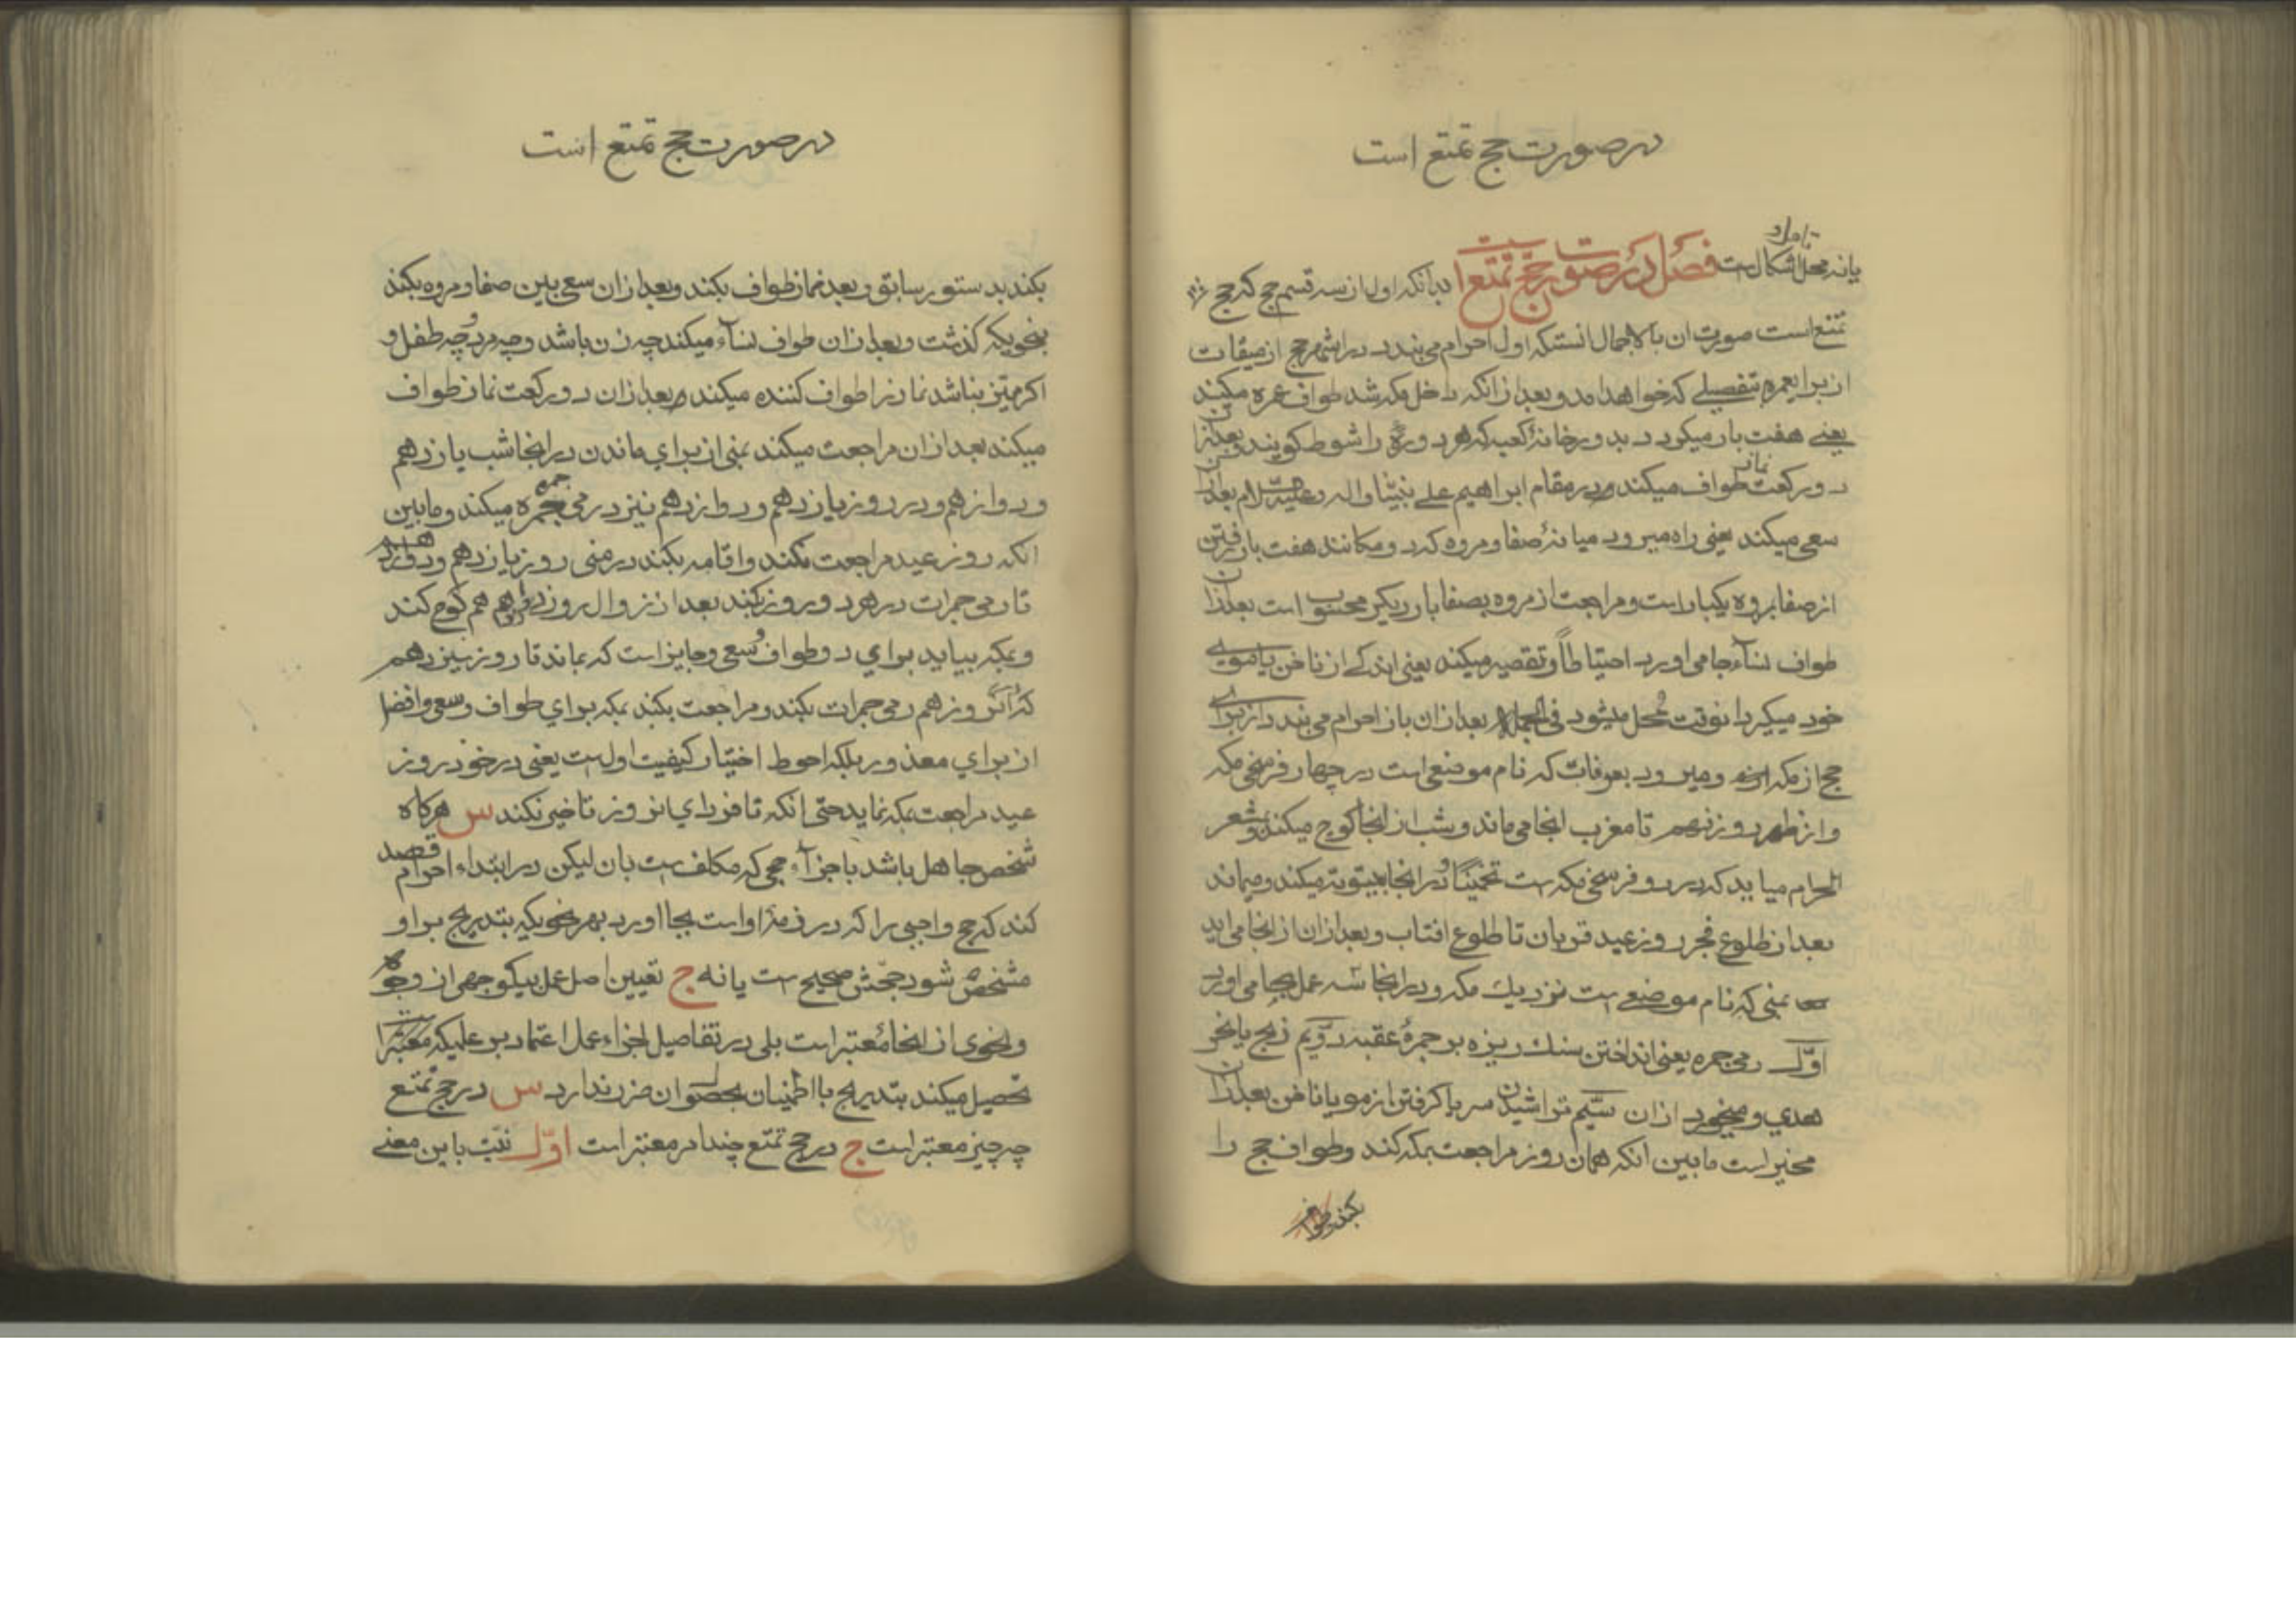 در صورت حج تمتع است
یا نه محل اشکالست فصل در صورت حج تمتع است بدانکه اول از سه قسم حج که حج
تمتع است صورت ان بالاجمال انستکه اول احرام می بندد در اشهر حج از میقات
از برایعمره بتفصیلے که خواهد امد و بعد از انکه داخل مکه شد طواف عمره میکند
یعنے هفت بار میکردد بدور خانهٔ کعبه که هر دورهٔ را شوط کویند بعد از ان
دو رکعت نماز طواف میکند در مقام ابراهیم علی نبینا واله وعلیه السلام بعد از ان
سعی میکند یعنی راه میرود میانهٔ صفا و مروه که دو مکانند هفت بار رفتن
از صفا بمروه یکبار است و مراجعت از مروه بصفا بار دیکر محسوب است بعد از ان
طواف نساء بجا می اورد احتیاطاً و تقصیر میکند یعنی اندکے از ناخن یا موی
خود میکیرد انوقت محل میشود فی الجمله بعد از ان باز احرام می بندد از برای
حج از مکه و میرود بعرفات که نام موضعی است در چهار فرسخی مکه
و از ظهر روز نهم تا مغرب انجا می ماند و شب از انجا کوچ میکند و بمشعر
الحرام میاید که در دو فرسخی مکه است تخمیناً و در انجا بیتوته میکند و میماند
بعد از طلوع فجر روز عید قربان تا طلوع افتاب و بعد از ان از انجا می اید
بمنی که نام موضعے است نزدیك مکه و در انجا سه عمل بجا می اورد
اوّل رمی جمره یعنی انداختن سنك ریزه بر جمرهٔ عقبه دویّم ذبح یا نحر
هدی و میخورد از ان سیّم تراشیدن سر یا کرفتن از مو یا ناخن بعد از ان
مخیر است مابین انکه همان روز مراجعت بمکه کند و طواف حج را
بکند
در صورت حج تمتع است
بکند بدستور سابق و بعد نماز طواف بکند و بعد از ان سعی بین صفا و مروه بکند
بنحویکه کذشت و بعد از ان طواف نساء میکند چه زن باشد و چه مرد و چه طفل و
اکر ممیّز نباشد نماز را طواف کننده میکند و بعد از ان دو رکعت نماز طواف
میکند بعد از ان مراجعت میکند بمنی از برای ماندن در انجا شب یازدهم
و دوازدهم و در روز یازدهم و دوازدهم نیز رمی جمره میکند و مابین
انکه روز عید مراجعت نکند و اقامه بکند در منی روز یازدهم و دوازدهم
تا رمی جمرات در هر دو روز بکند بعد از زوال روز دوازدهم هم کوچ کند
و بمکه بیاید برای دو طواف و سعی و جایز است که بماند تا روز سیزدهم
که انروز هم رمی جمرات بکند و مراجعت بکند بمکه برای طواف و سعی و افضل
از برای معذور بلکه احوط اختیار کیفیت اولست یعنی در خود روز
عید مراجعت بمکه نماید حتی انکه تا فردای انروز تاخیر نکند س هرکاه
شخص جاهل باشد باجزاء حجی که مکلف است بان لیکن در ابتداء احرام قصد
کند که حج واجبی را که در ذمهٔ او است بجا اورد بهر نحویکه بتدریج بر او
مشخص شود حجّش صحیح است یا نه ج تعیین اصل عمل بیکوجهی از وجوه
و نحوی از انحاء معتبر است بلی در تفاصیل اجزاء عمل اعتماد بر علمیکه معتبر است
تحصیل میکند بتدریج با اطمینان بحصول ان ضرر ندارد س در حج تمتع
چه چیز معتبر است ج در حج تمتع چند امر معتبر است اوّل نیّت باین معنے